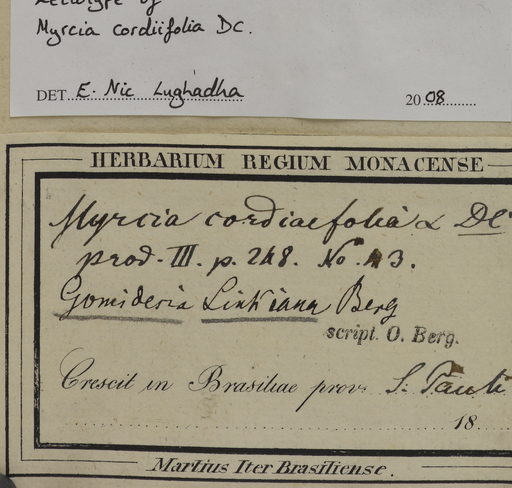 Lectotype of
Myrcia cordiifolia DC.
DET. E. Nic Lughadha 2008
HERBARIUM REGIUM MONACENSE
Myrcia cordiaefolia α DC
prod. III. p. 248. No. 43.
Gomidesia Linkiana Berg
script. O. Berg.
Crescit in Brasiliae prov. S. Pauli
18
Martius Iter Brasiliense.